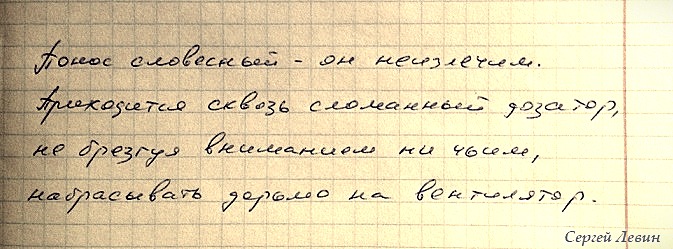 Понос словесный - он неизлечим.
Приходится сквозь сломанный дозатор,
не брезгуя вниманием ни чьим,
набрасывать дерьмо на вентилятор.
Сергей Левин